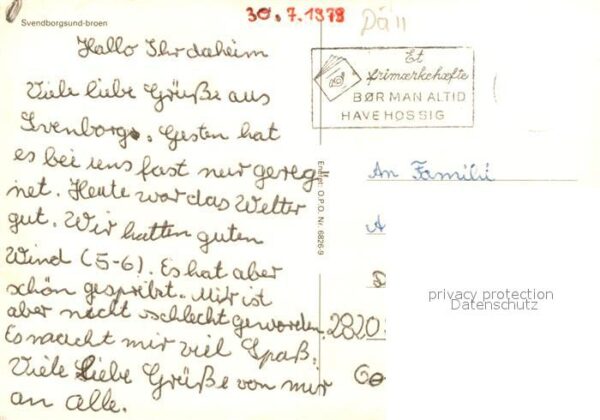 30.7.1979
Dä 11
Svendborgsund-broen
Hallo Ihr daheim
Viele liebe Grüße aus
Svenborg. Gesten hat
es bei uns fast nur gereg
net. Heute war das Wetter
gut. Wir hatten guten
Wind (5-6). Es hat aber
schön gespritzt. Mir ist
aber nicht schlecht geworden.
Es macht mir viel Spaß.
Viele Liebe Grüße von mir
an alle.
Et
frimærkehæfte
BØR MAN ALTID
HAVE HOS SIG
Eneret: O.P.O. Nr. 6826-9
An Famili
A
2820
Go
privacy protection
Datenschutz